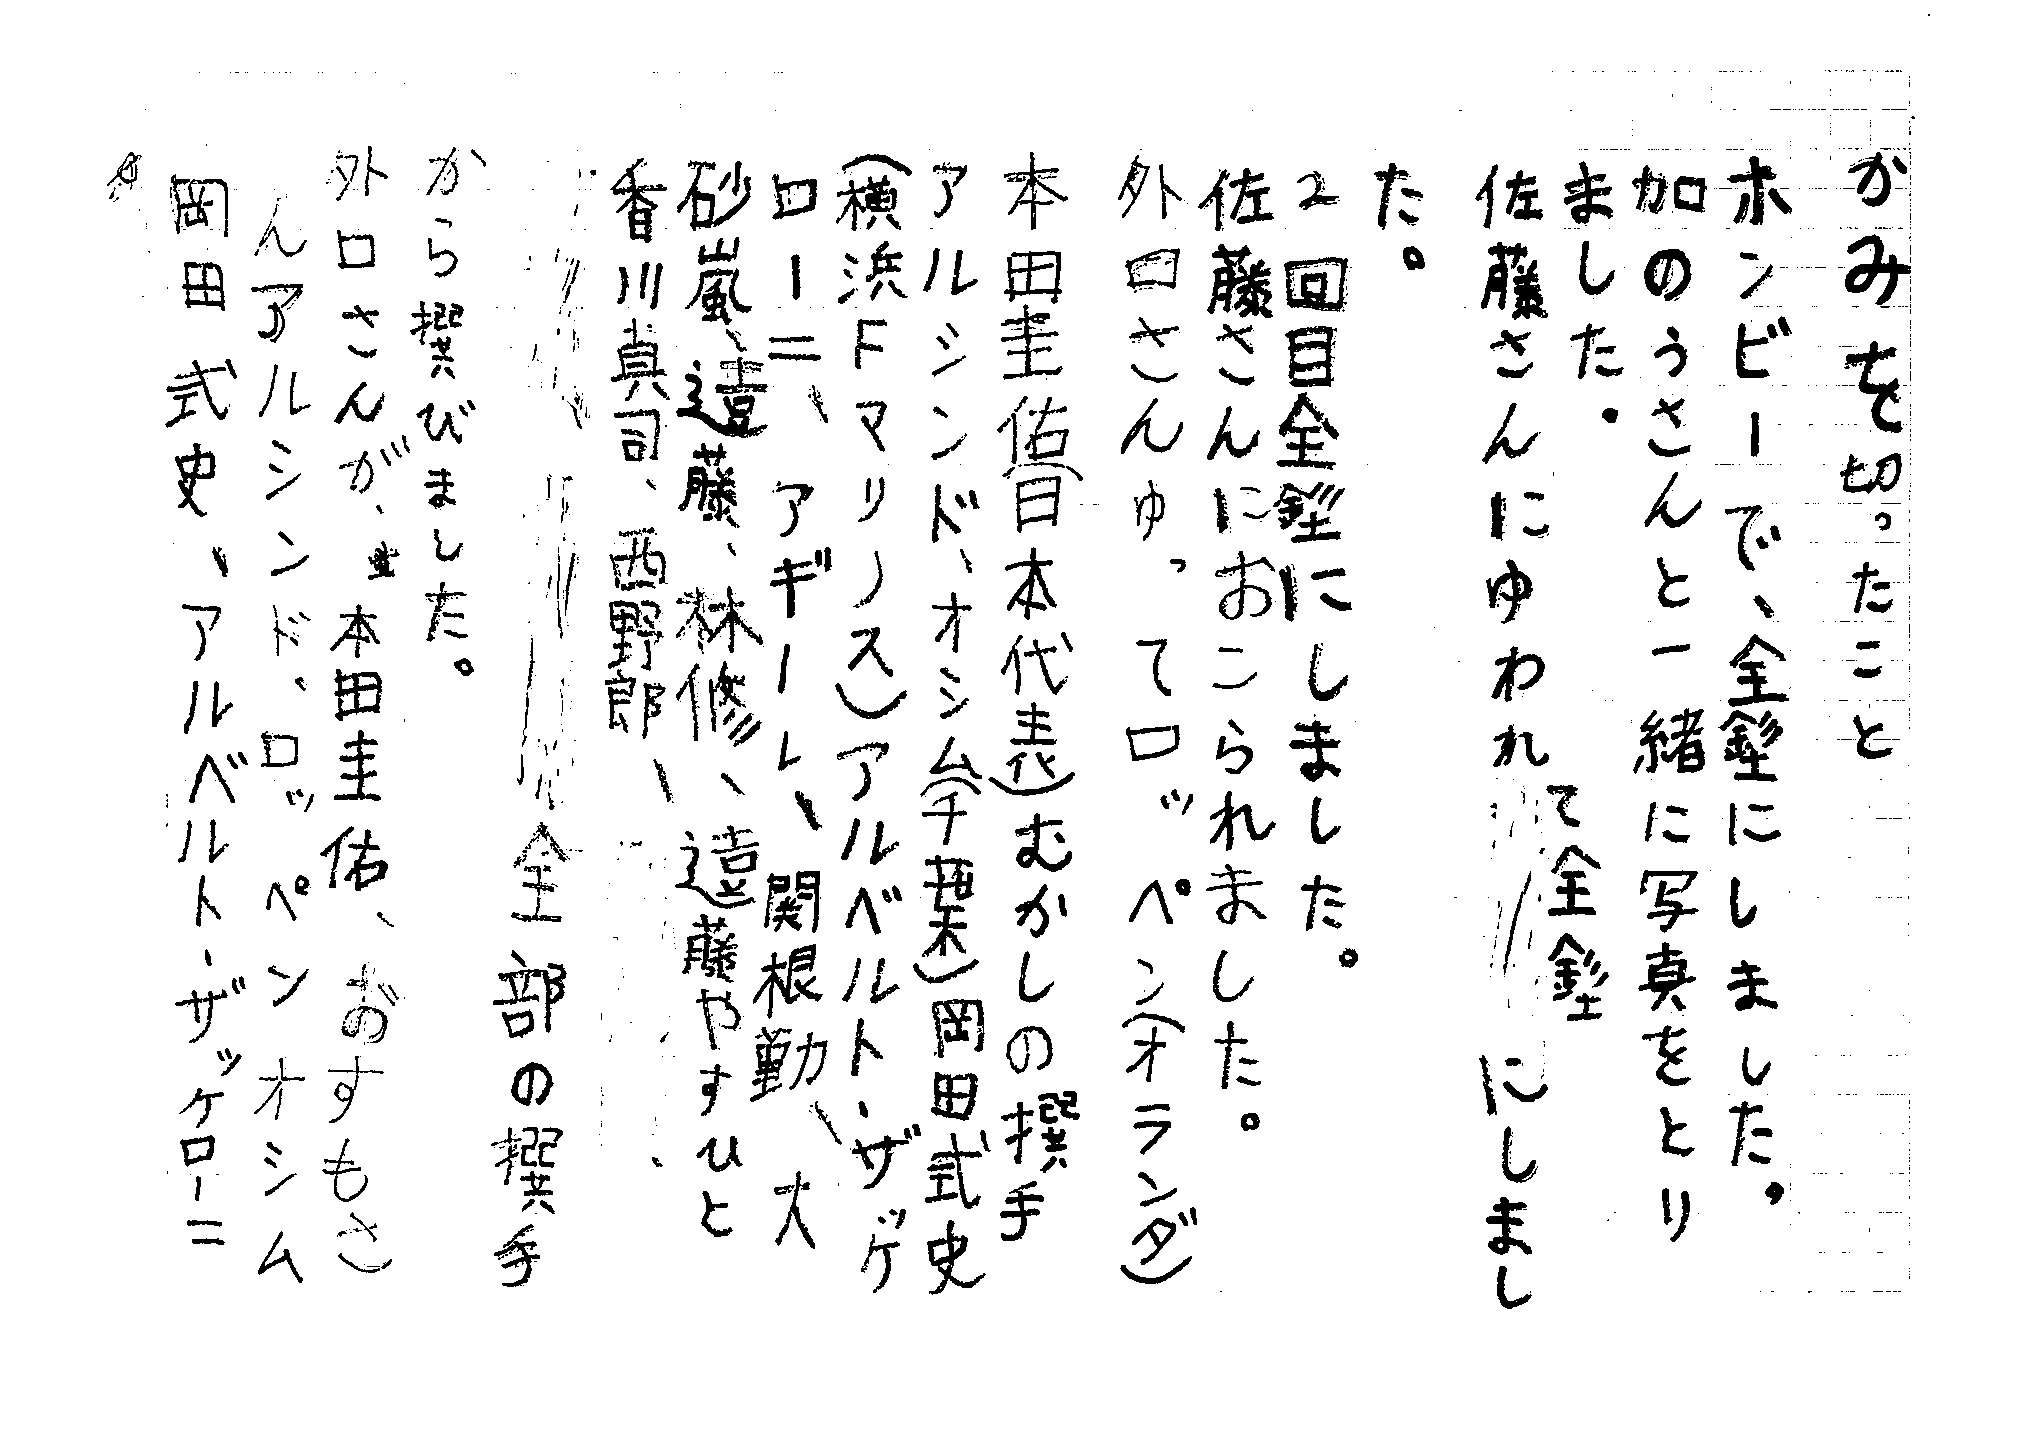 かみを切ったこと
ホンビーで、全にしました。
加のうさんと一緒に写真をとり
ました。
佐藤さんにゆわれて全にしまし
た。
2回目全にしました。
佐藤さんにおこられました。
外口さんゅってロッペン(オランダ)
本田圭佑(日本代表)むかしの撰手
アルシンド、オシム(千葉)岡田式史
(横浜Fマリノス)アルベルト・ザッケ
ローニ、アギーレ、関根勤、大
砂嵐、遠藤、林修、遠藤やすひと
香川真司、西野郎、
全部の撰手
から撰びました。
外口さんが、本田圭佑、おすもさ
んアルシンド、ロッペンオシム
岡田式史、アルベルト・ザッケローニ